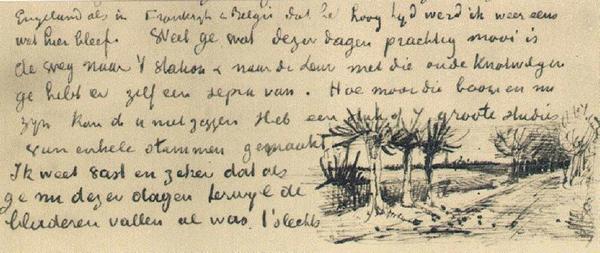 Engeland als in Frankrijk & Belgie dat het hoog tyd werd ik weer eens
wat hier bleef. Weet ge wat dezer dagen prachtig mooi is
de weg naar 't station & naar de Leur met die oude knotwilgen
ge hebt er zelf een sepia van. Hoe mooi die boomen nu
zyn kan ik u niet zeggen Heb een stuk of 7 groote studies
van enkele stammen gemaakt
Ik weet vast en zeker dat als
ge nu dezer dagen terwyl de
bladeren vallen al was 't slechts